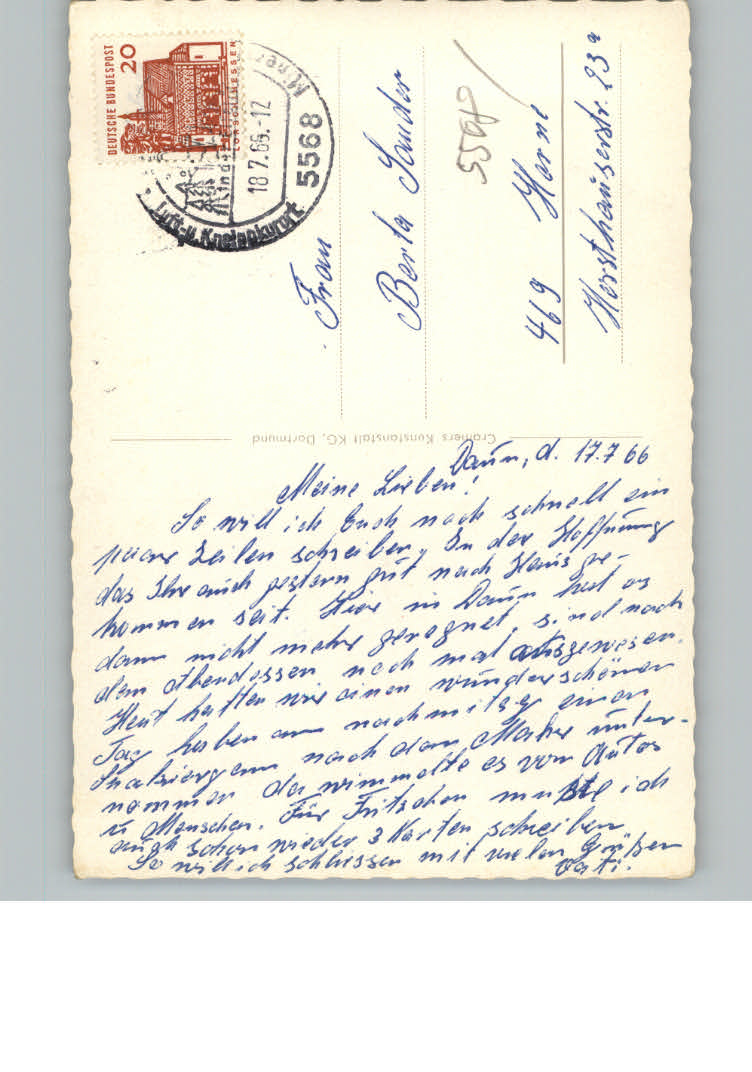 DEUTSCHE BUNDESPOST
20
LORSCH/HESSEN
Luft- u. Kneippkurort
18.7.66.-12
5568
Frau
Berta Sander
469 Herne
Horsthauserstr. 23a
Cramers Kunstanstalt KG, Dortmund
Daun, d. 17.7 66
Meine Lieben!
So will ich Euch noch schnell ein
paar Zeilen schreiben, In der Hoffnung
das Ihr auch gestern gut nach Haus ge-
kommen seit. Hier in Daun hat es
dann nicht mehr geregnet, sind nach
dem Abendessen noch mal ausgewesen.
Heut hatten wir einen wunderschönen
Tag haben am nachmitag einen
nach dem Maare unter-
nommen da wimmelte es von Autos
u Menschen. Für Fritzchen muste ich
auch schon wieder 3 Karten schreiben
So will ich schliessen mit vielen Grüßen
Vati.